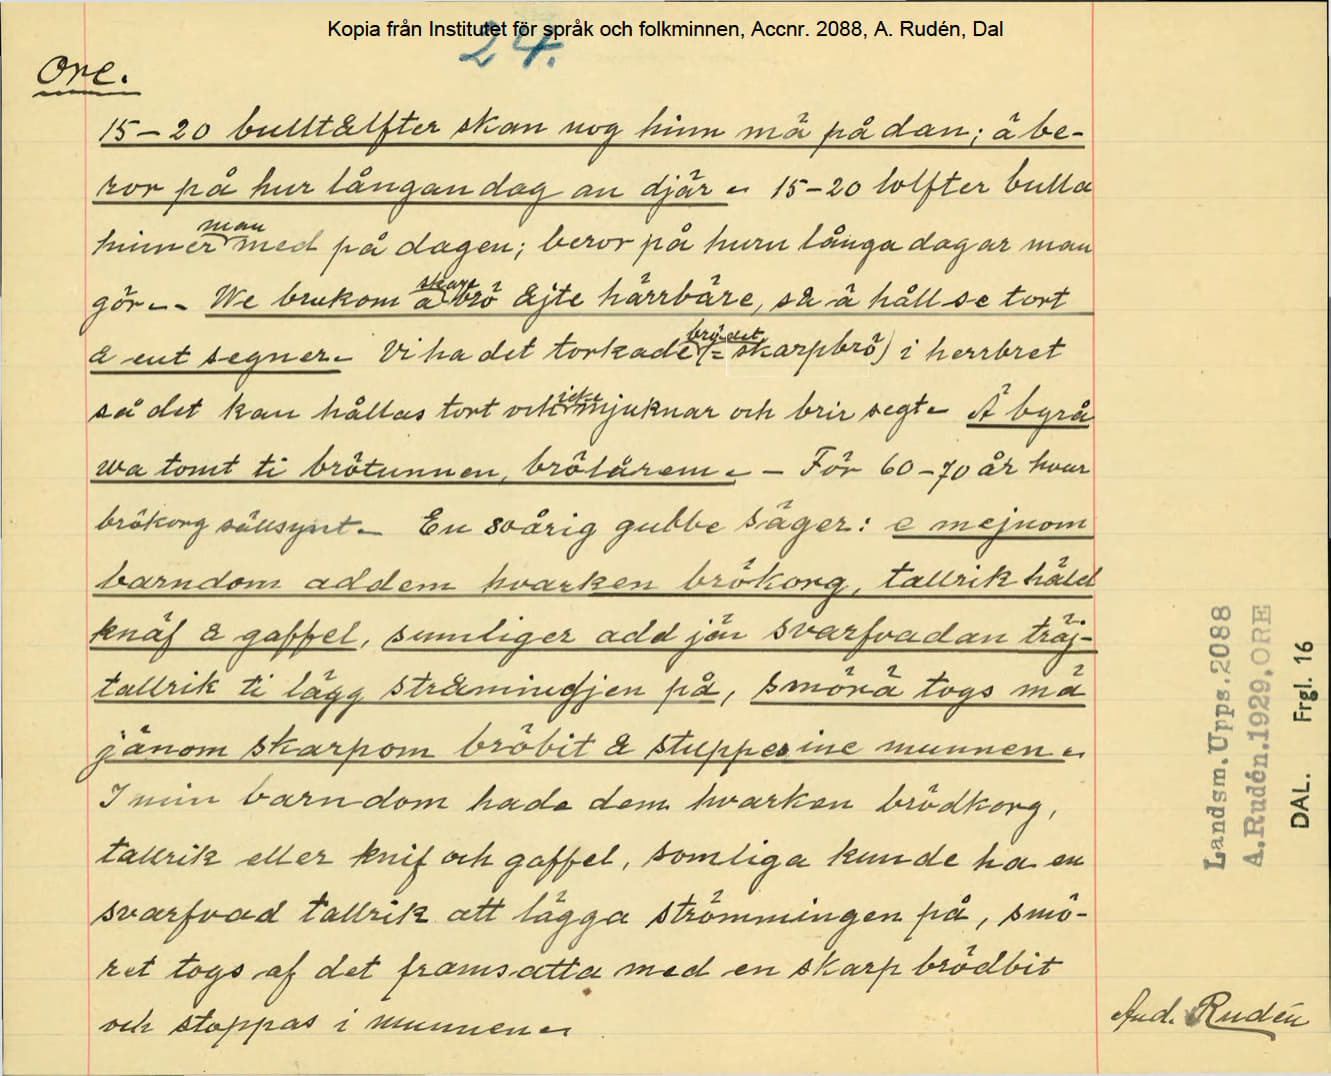 Kopia från Institutet för språk och folkminnen, Accnr. 2088, A. Rudén, Dal
24.
Ore.
15-20 bulltålfter skan nog hinn mä på dan; ä be-
ror på hur långan dag an djär. 15-20 tolfter bulla
hinner man med på dagen; beror på huru långa dagar man
gör. - We brukom a skarp brö åjte härrbäre, så ä håll se tort
å ent segner. Vi ha det torkade brödet (= skarpbrö) i herrbret
så det kan hållas tort och icke mjuknar och brir segt. Ä byrå
wa tomt ti brötunnen, brölårem. - För 60-70 år hvar
brökorg sällsynt. En 80årig gubbe säger: e mejnom
barndom addem hvarken brökorg, tallrik häld
knäf å gaffel, sumliger add jän svarfvadan träj-
tallrik ti lägg stråmindjen på, smörä togs mä
jänom skarpom bröbit å stuppes ine munnen.
I min barndom hade dem hvarken brödkorg,
tallrik eller knif och gaffel, somliga kunde ha en
svarfvad tallrik att lägga strömmingen på, smö-
ret togs af det framsatta med en skarp brödbit
och stoppas i munnen.
And. Rudén
Landsm. Upps. 2088
A. Rudén. 1929, ORE
DAL. Frgl. 16